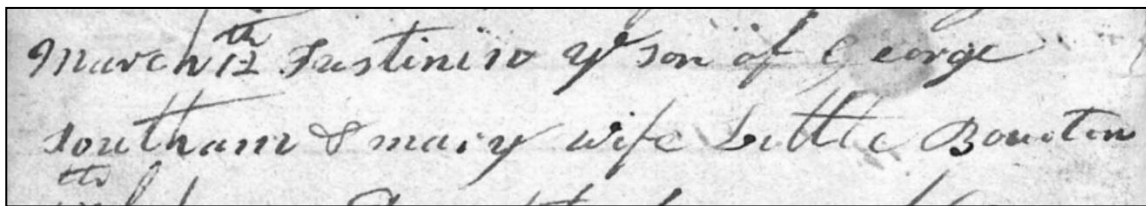 March 12th Justinin ye son of George
Southam & mary wife Little Bourton
th